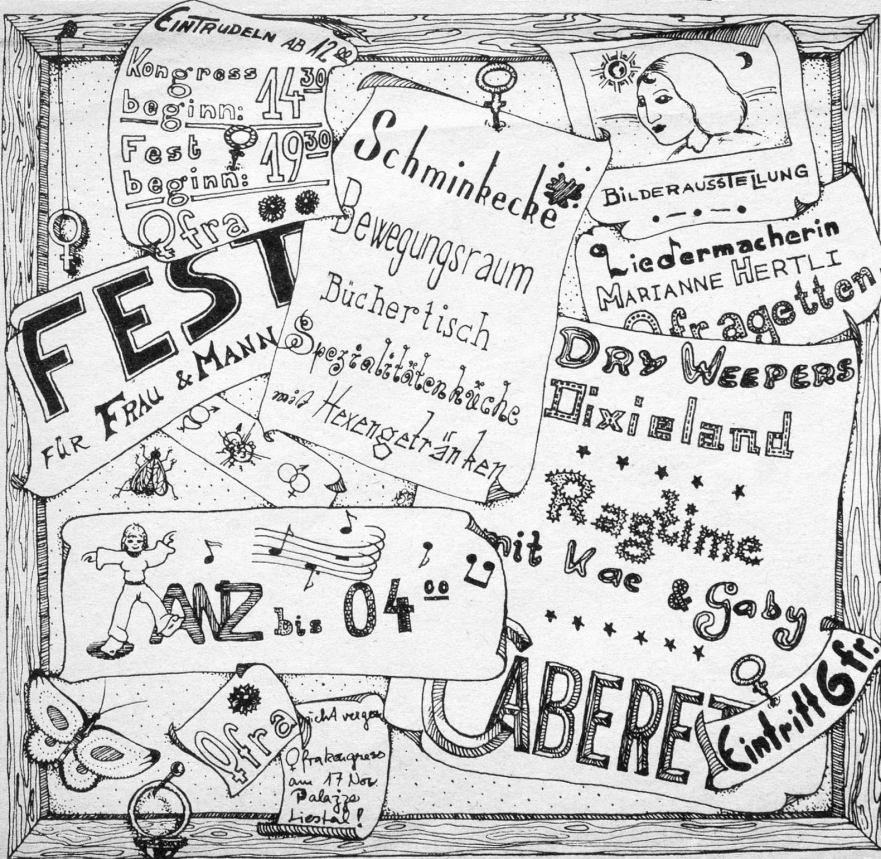 EINTRUDELN AB 12 00
Kongress
beginn: 14 30
Fest
beginn: 19 30
Ofra
FEST
FÜR FRAU & MANN
Schminkecke
Bewegungsraum
Büchertisch
Spezialitätenküche
mit Hexengetränken
BILDERAUSSTELLUNG
Liedermacherin
MARIANNE HERTLI
Ofragetten
DRY WEEPERS
Dixieland
Ragtime
mit Kae & Gaby
CABERET
Eintritt 6 fr.
TANZ bis 04 00
Ofra
nicht vergess
Ofrakongress
am 17 Nov.
Palazzo
Liestal!